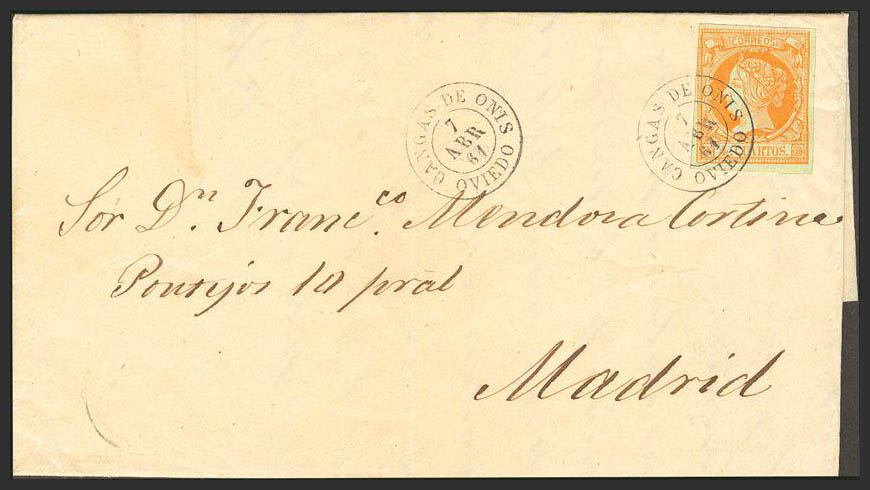 CORREOS
CUARTOS.
CANGAS DE ONIS
7
ABR
61
OVIEDO
CANGAS DE ONIS
7
ABR
61
OVIEDO
Sor Dn Franco. Mendoza Cortina
Pontejos 10 pral
Madrid